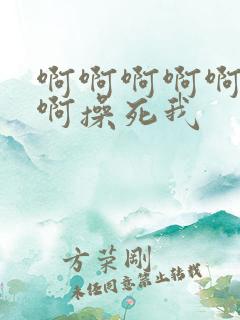 啊啊啊啊啊
啊操死我
方荣刚
未经同意禁止转载